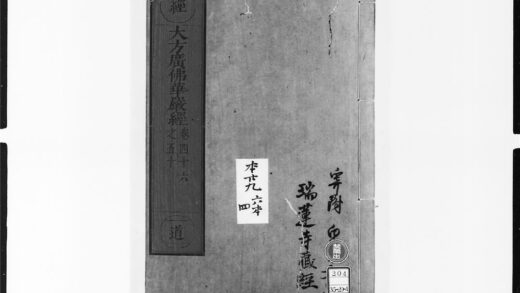 經
大方廣佛華嚴經 卷四十六
之五十
道
本廿九 六本
四
寄附
瑞蓮寺藏經
204